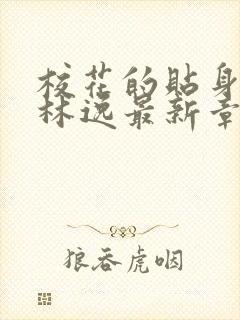 校花的贴身
林逸最新章
狼吞虎咽